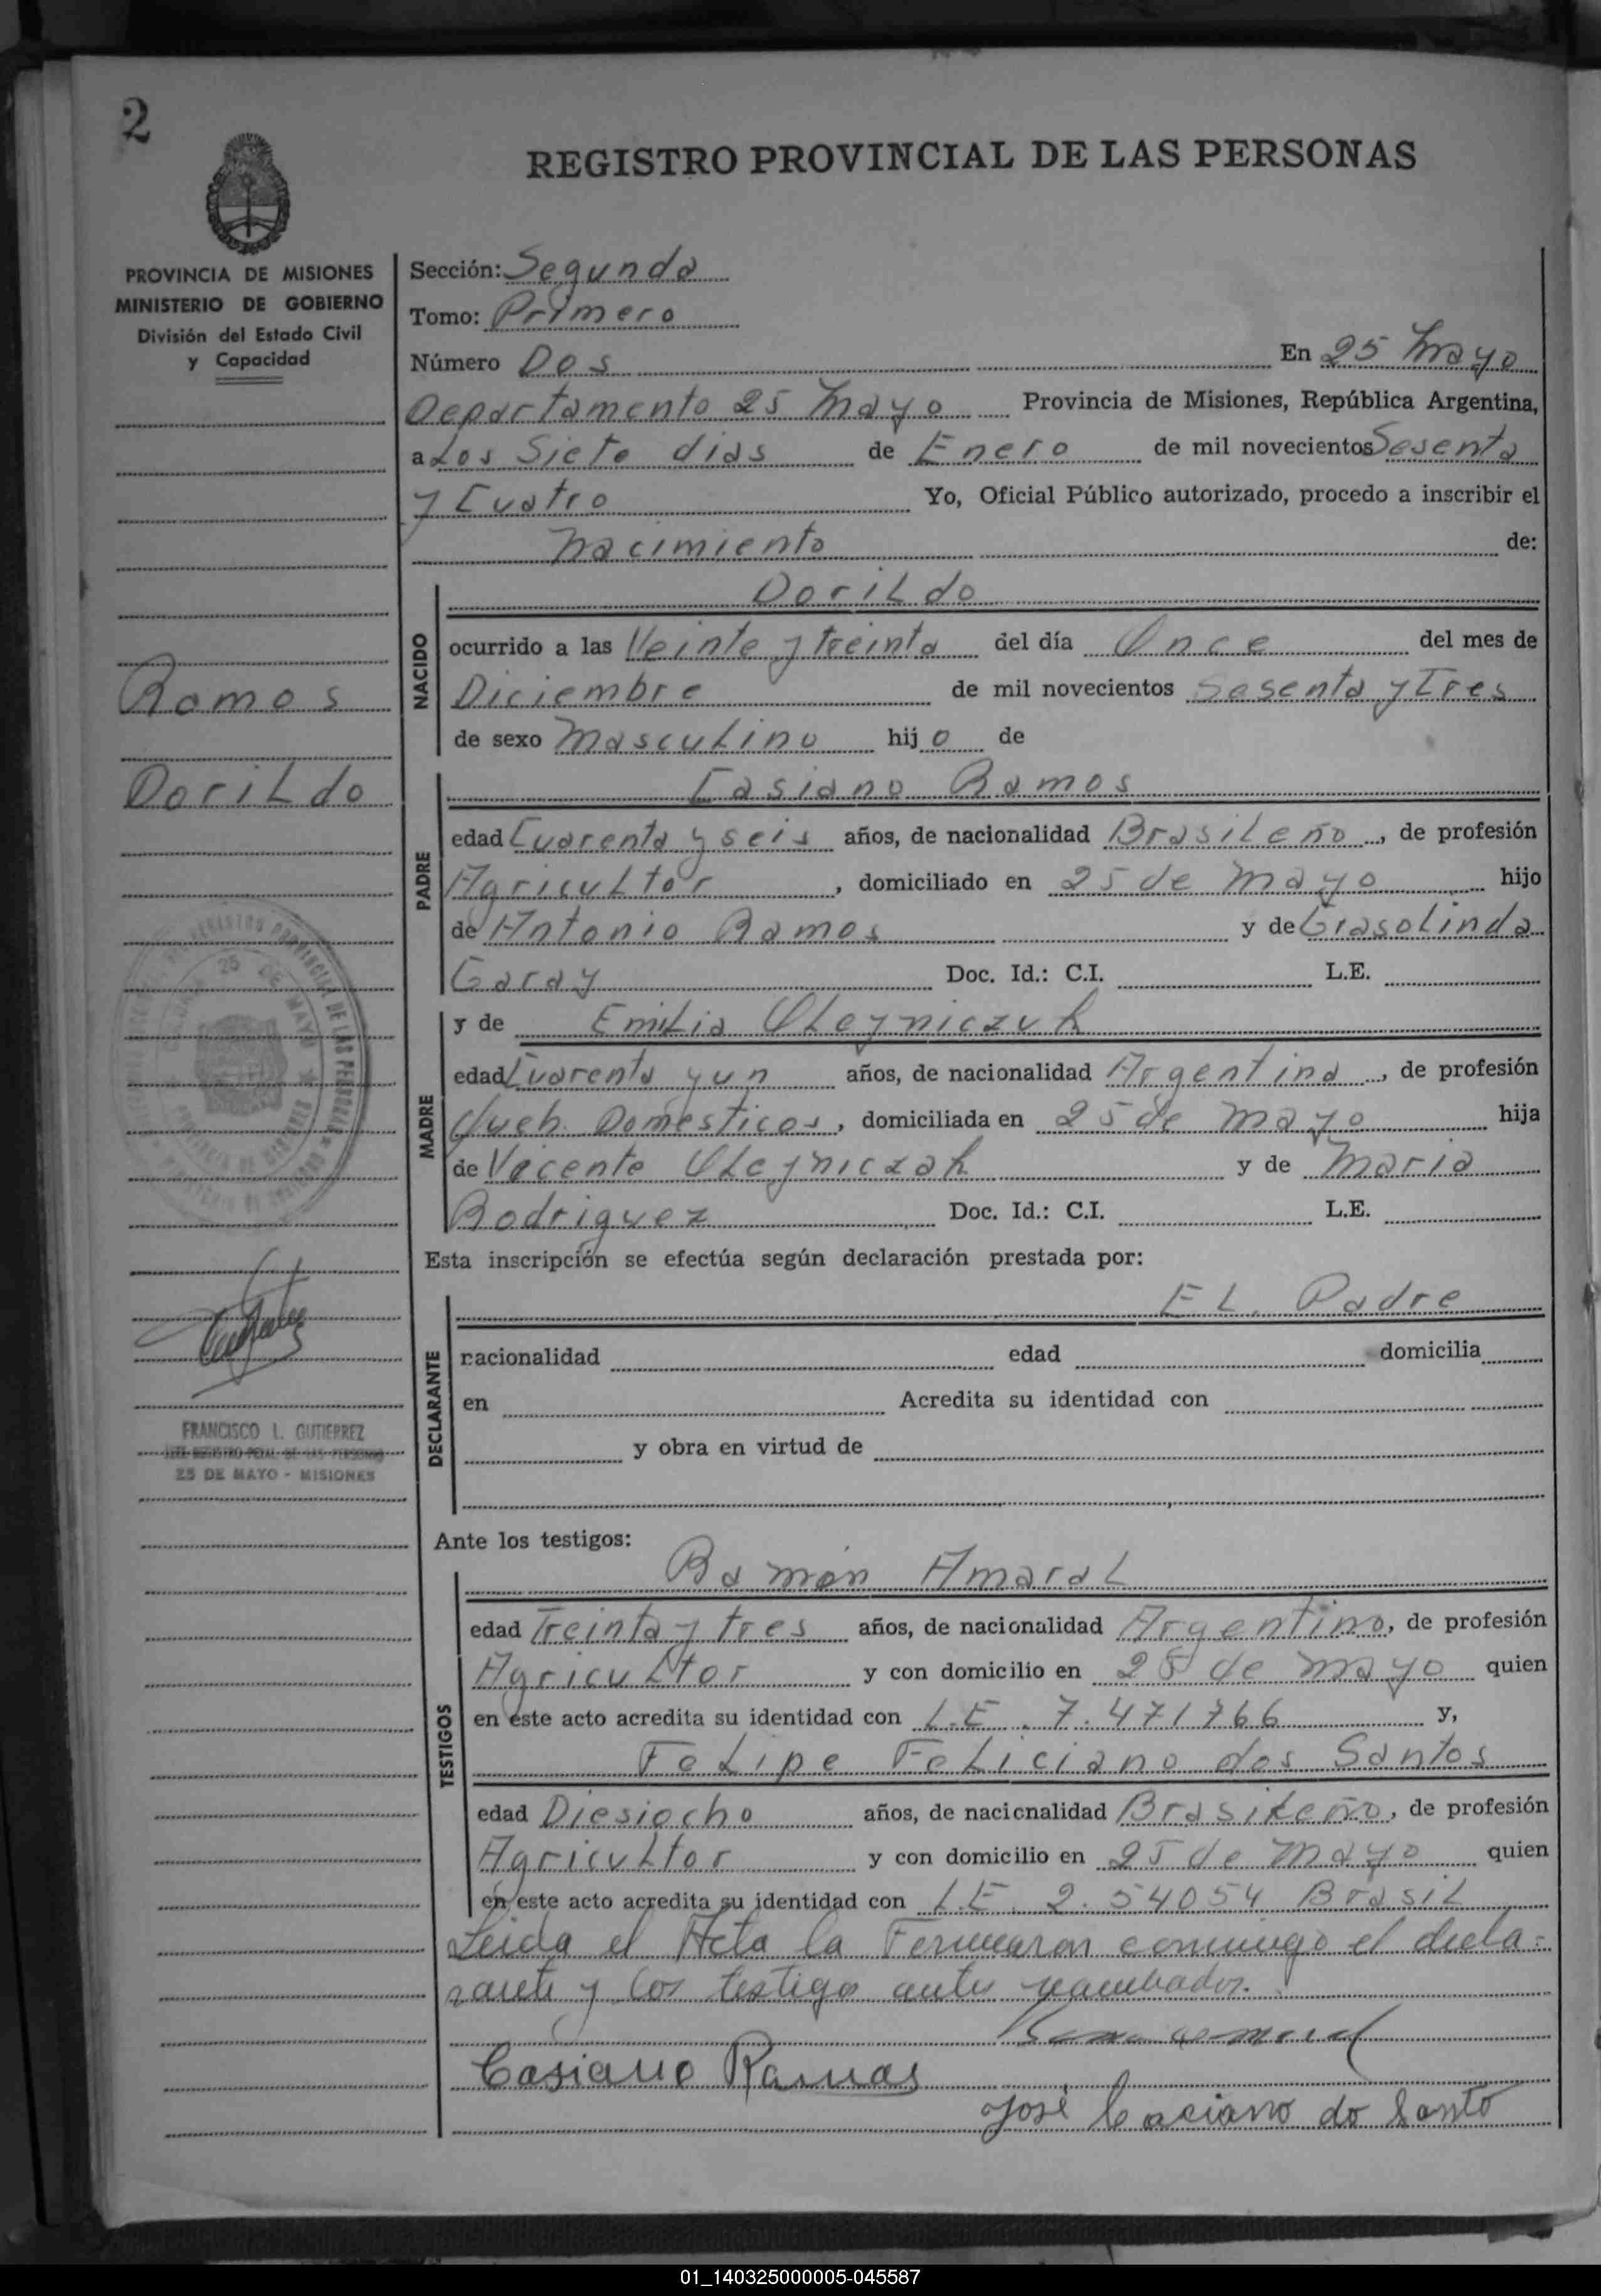 2
REGISTRO PROVINCIAL DE LAS PERSONAS
PROVINCIA DE MISIONES
MINISTERIO DE GOBIERNO
División del Estado Civil
y Capacidad
Sección: Segunda
Tomo: Primero
Número Dos En 25 Mayo
Departamento 25 Mayo Provincia de Misiones, República Argentina,
a Los Siete dias de Enero de mil novecientos Sesenta
y Cuatro Yo, Oficial Público autorizado, procedo a inscribir el
Nacimiento de:
Ramos
Dorildo
NACIDO
Dorildo
ocurrido a las Veinte y treinta del día Once del mes de
Diciembre de mil novecientos Sesenta y Tres
de sexo Masculino hijo de
PADRE
Casiano Ramos
edad Cuarenta y seis años, de nacionalidad Brasileño, de profesión
Agricultor, domiciliado en 25 de Mayo hijo
de Antonio Ramos y de Grasolinda
Garay Doc. Id.: C.I. L.E.
MADRE
y de Emilia Oleyniczuk
edad Cuarenta y un años, de nacionalidad Argentina, de profesión
Queh. Domésticos, domiciliada en 25 de Mayo hija
de Vecente Oleyniczak y de Maria
Rodriguez Doc. Id.: C.I. L.E.
Esta inscripción se efectúa según declaración prestada por:
DECLARANTE
EL Padre
nacionalidad edad domicilia
en Acredita su identidad con
y obra en virtud de
FRANCISCO L. GUTIERREZ
JEFE REGISTRO PCIAL DE LAS PERSONAS
25 DE MAYO - MISIONES
Ante los testigos:
TESTIGOS
Ramón Amaral
edad Treinta y tres años, de nacionalidad Argentino, de profesión
Agricultor y con domicilio en 25 de Mayo quien
en este acto acredita su identidad con L.E. 7.471766 y,
Felipe Feliciano dos Santos
edad Diesiocho años, de nacionalidad Brasileño, de profesión
Agricultor y con domicilio en 25 de Mayo quien
en este acto acredita su identidad con L.E. 2.54054 Brasil
Leida el Acta la Firmaron conmigo el decla-
rante y los testigo antes
Casiano Ramos
José Caciano do Santo
01_140325000005-045587